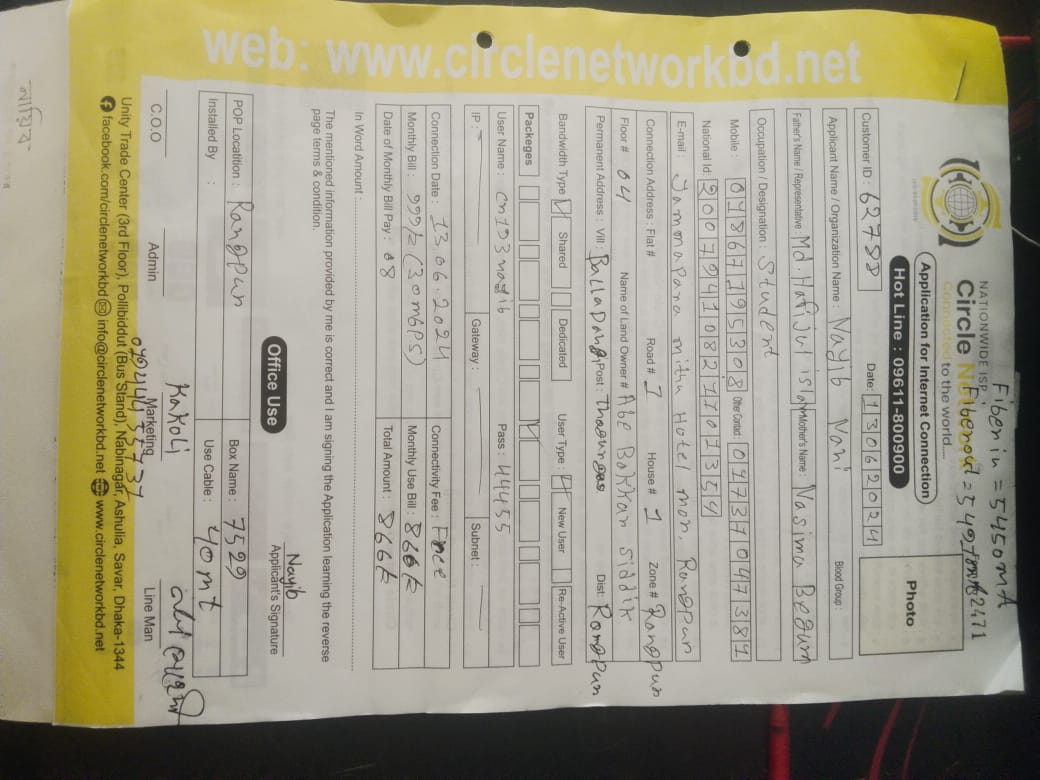 Fiber in = 5450 mA
Fiberout = 5
NATIONWIDE ISP
Circle Ne
Connected to the world....
Application for Internet Connection
Hot Line : 09611-800900
Photo
Customer ID : 62788
Date: 13062024
Applicant Name / Organization Name : Nayib Nani
Blood Group:
Father's Name / Representative : Md. Hafijul islam Mother's Name : Nasima Begum
Occupation / Designation : Student
Mobile : Other Contact :
National Id:
E-mail : Jammapara mithu Hotel mor, Rangpur
Connection Address : Flat # Road # 1 House # 1 Zone # Rangpur
Floor # 04 Name of Land Owner # Abe Bakkar siddik
Permanent Address : Vill : Post : Dist: Rangpur
Bandwidth Type Shared Dedicated User Type : New User Re-Active User
Packeges
User Name : Pass : 44455
IP : Gateway : Subnet :
Connection Date : 13.06.2024 Connectivity Fee : Free
Monthly Bill : 999tk (30mbps) Monthly Use Bill : 866tk
Date of Monthly Bill Pay : 08 Total Amount : 866tk
In Word Amount :
The mentioned information provided by me is correct and I am signing the Application learning the reverse
page terms & condition.
Nayib
Applicant's Signature
Office Use
POP Locatition : Rangpur Box Name : 7529
Installed By : Use Cable : 40mt
Kakoli
C.O.O Admin Marketing Line Man
Unity Trade Center (3rd Floor), Pollibiddut (Bus Stand), Nabinagar, Ashulia, Savar, Dhaka-1344
facebook.com/circlenetworkbd info@circlenetworkbd.net www.circlenetworkbd.net
web: www.circlenetworkbd.net